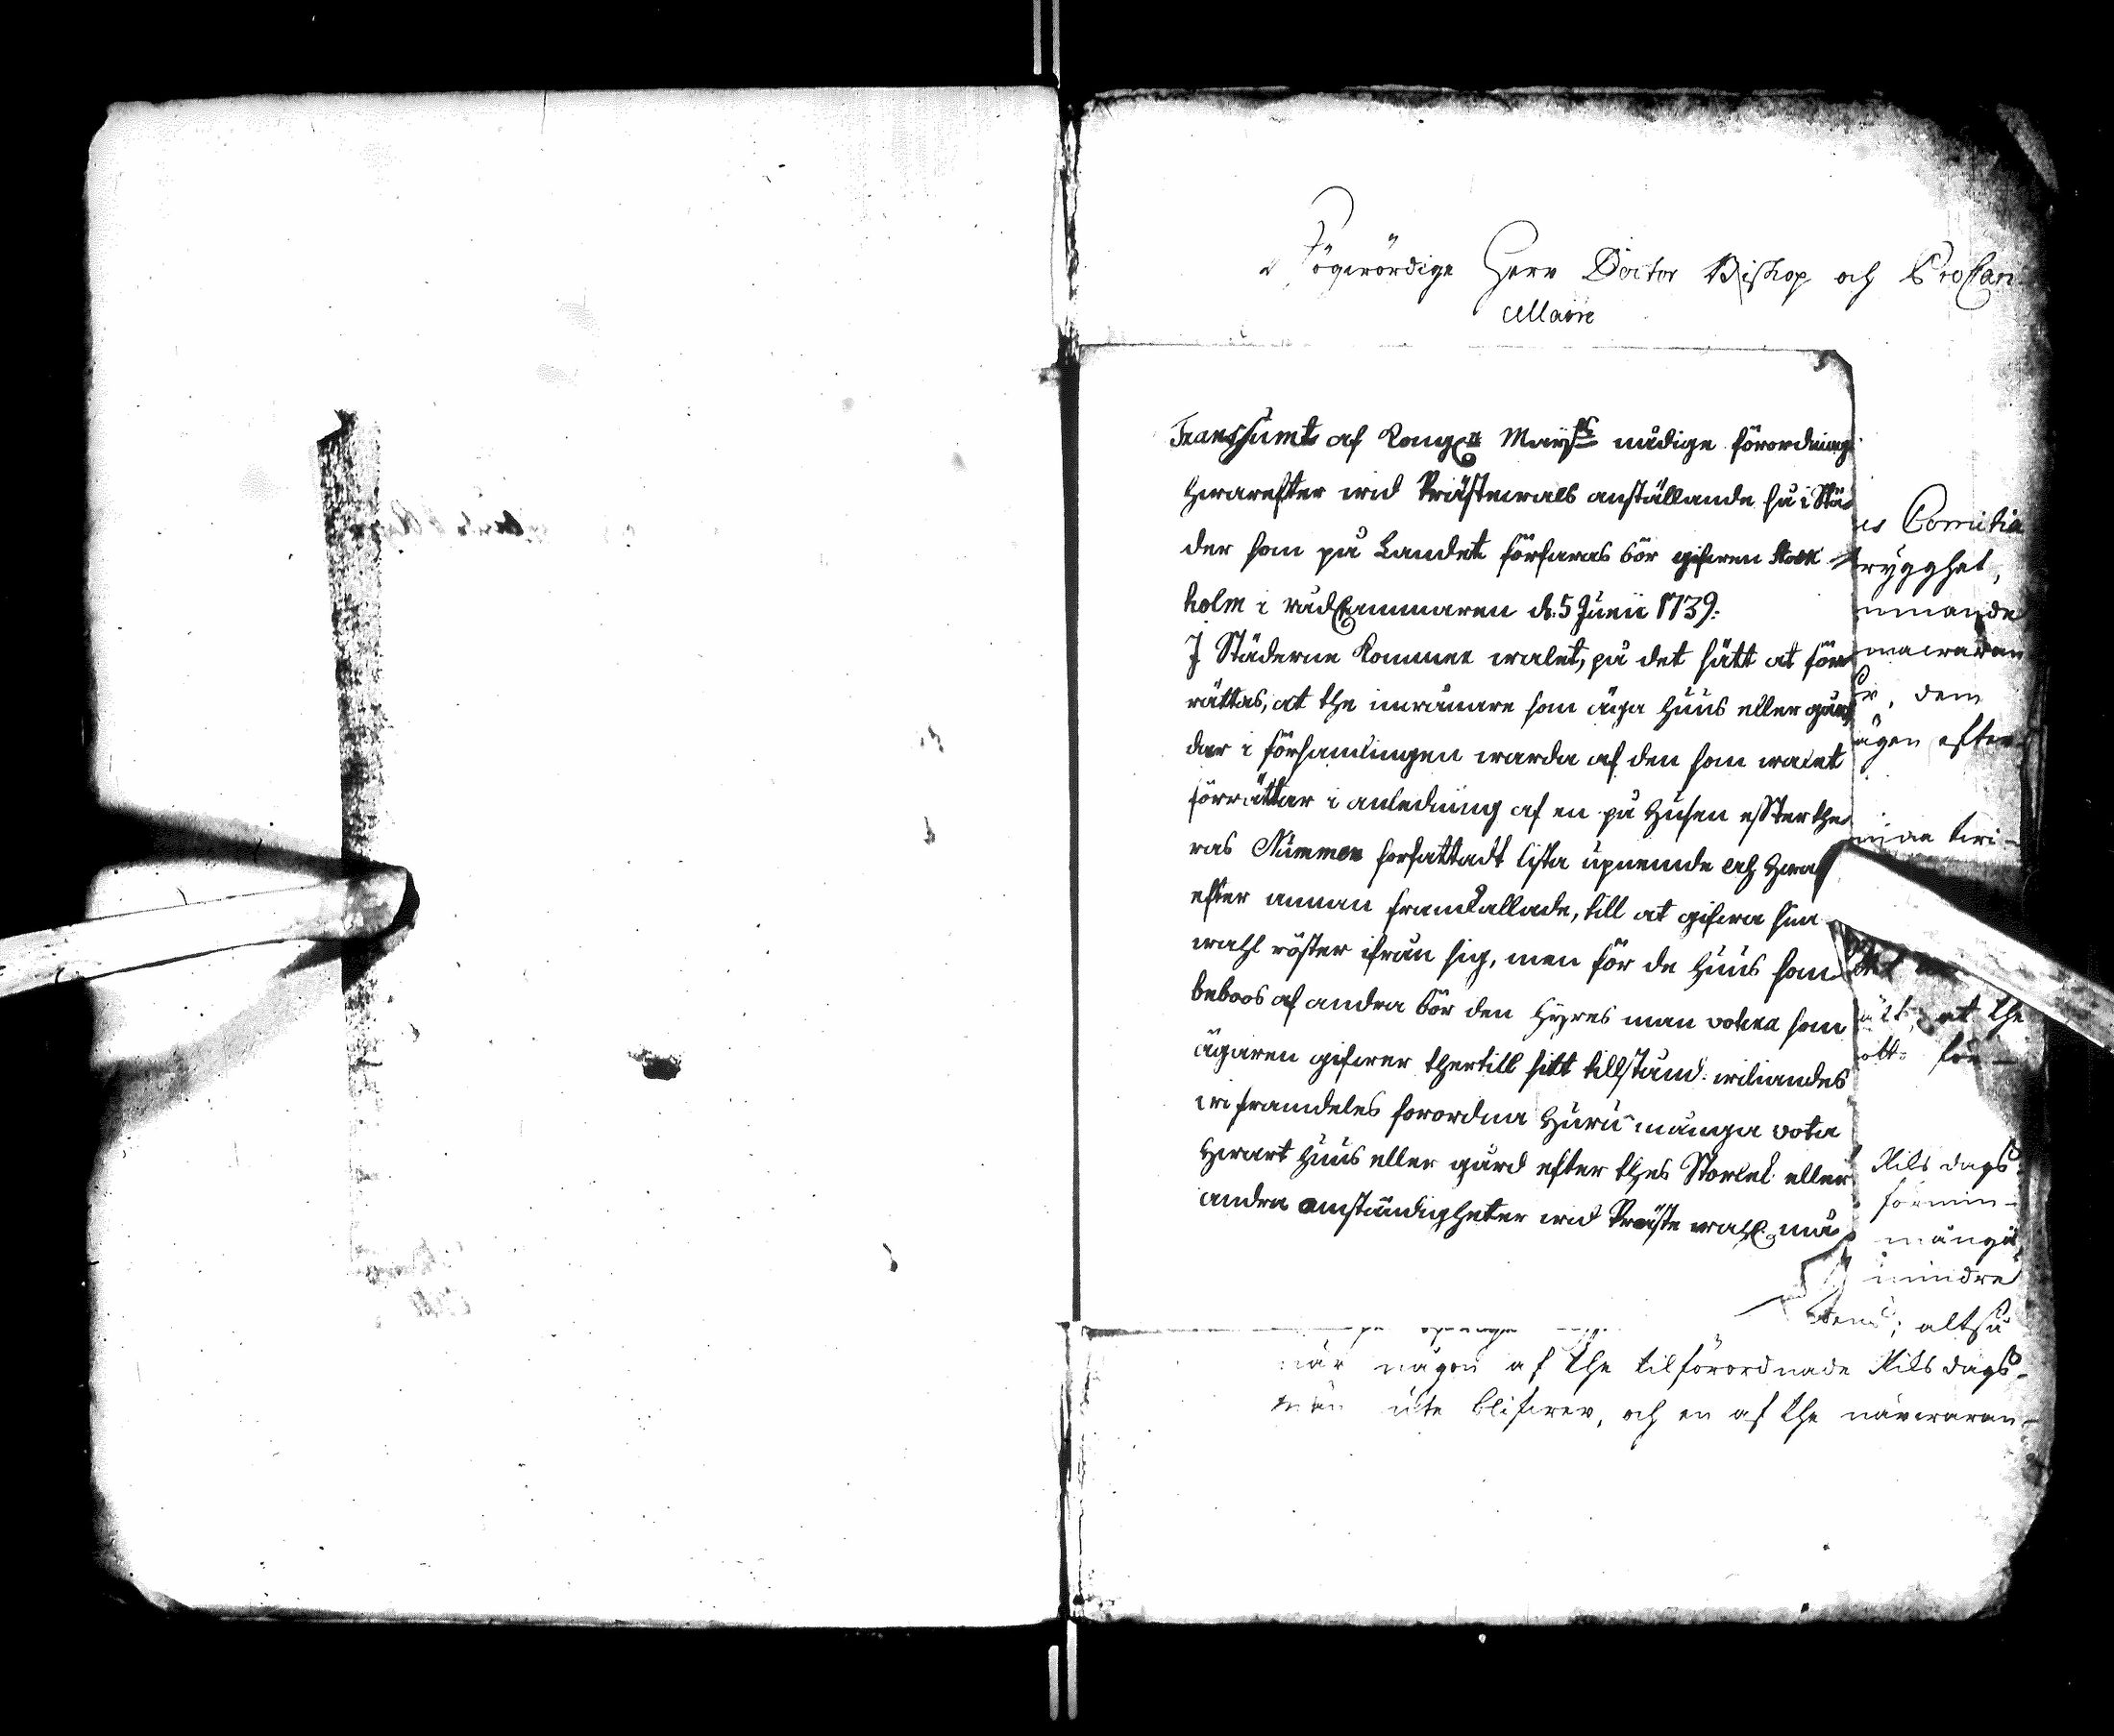 Högwördige Herr Doctor Biskop och ProCan-
cellaire
Transsumt af Kongl. Maij:ts nådige förordning
hwarefter wid Prästewals anställande så i Stä
der som på Landet förfaras bör gifwen Stock
holm i rådCammaren d: 5 Junii 1739:
J Städerne kommer walet, på det sätt at för
rättas, at the inwånare som äga huus eller går
dar i församlingen warda af den som walet
förrättar i anledning af en på husen effter the
ras Nummer forfattadt lista upnemde och hwar
efter annan framkallade, till at gifwa sin
wahl röster ifrån sig, men för de huus som
beboos af andra bör den hyres man votera som
ägaren gifwer thertill sitt tillstånd: wiliandes
wi framdeles forordna huru många vota
hwart huus eller gård efter thes Storlek eller
andra omständigheter wid Präste wahl må
es Comitia
trygghet,
mmande
r, dem
ågen efter
at the
för-
Riksdags
förmin-
många
mindre
altså
när någon af the tilförordnade Riksdags-
män ute blifwer, och en af the närwaran-